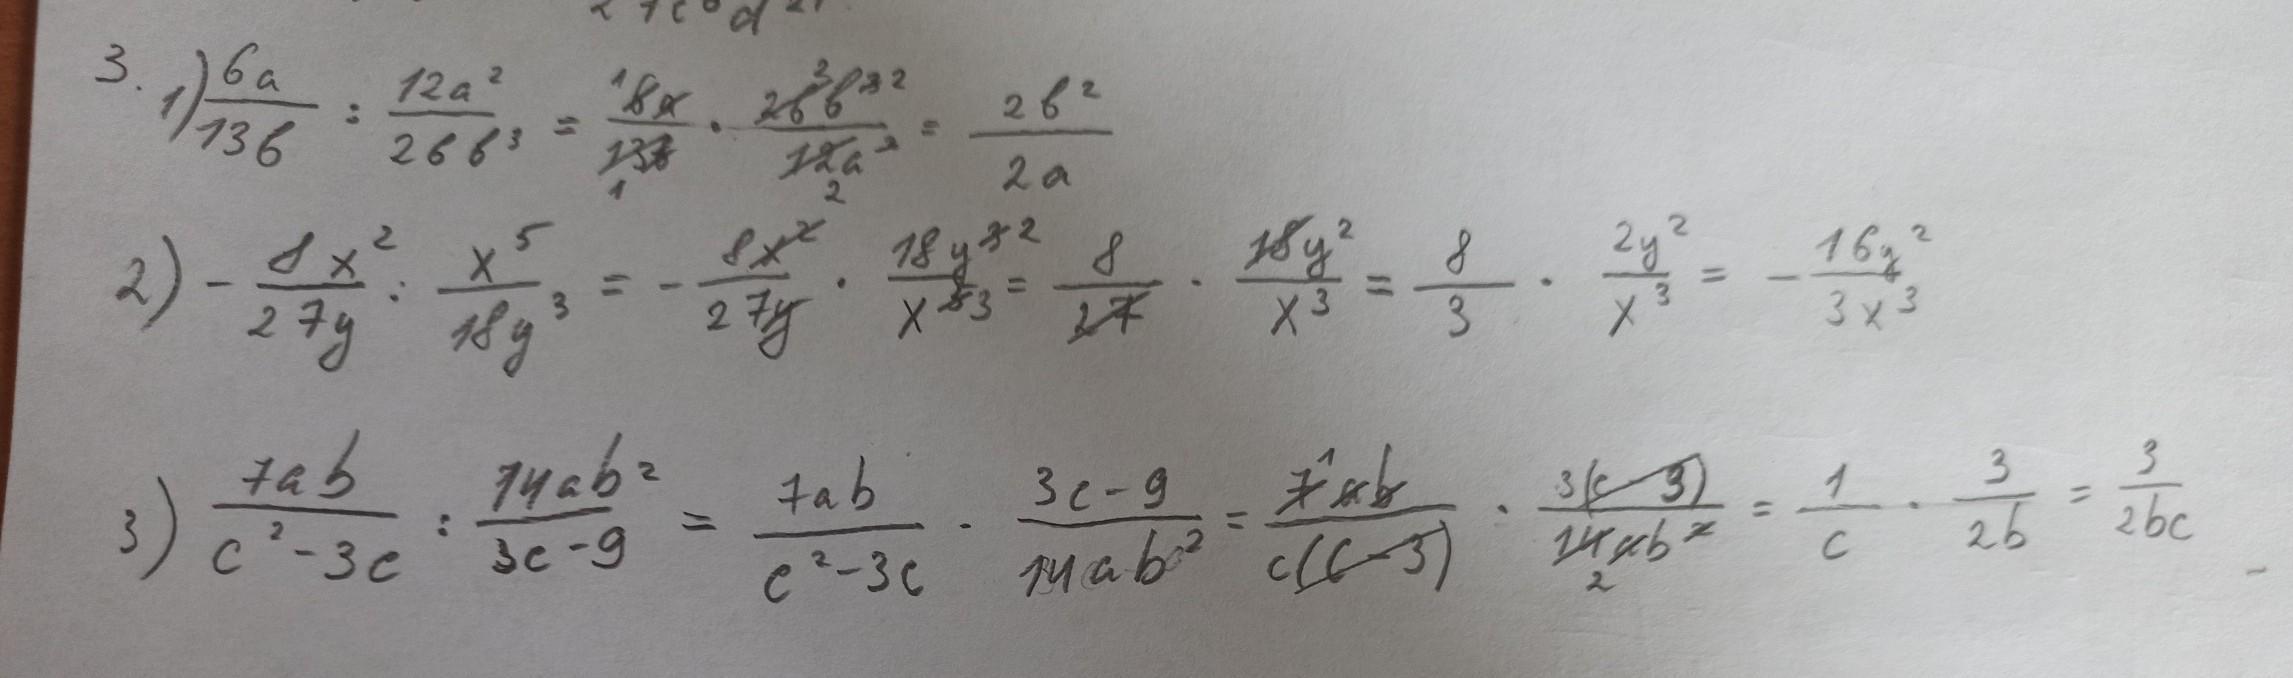 27c⁶d²¹
3. 1) 6a/13b : 12a²/26b³ = 6a/13b · 26b³/12a² = 2b²/2a
2) - 8x²/27y : x⁵/18y³ = - 8x²/27y · 18y³²/x⁵³ = 8/27 · 18y²/x³ = 8/3 · 2y²/x³ = - 16y²/3x³
3) 7ab/c²-3c : 14ab²/3c-9 = 7ab/c²-3c · 3c-9/14ab² = 7ab/c(c-3) · 3(c-3)/14ab² = 1/c · 3/2b = 3/2bc